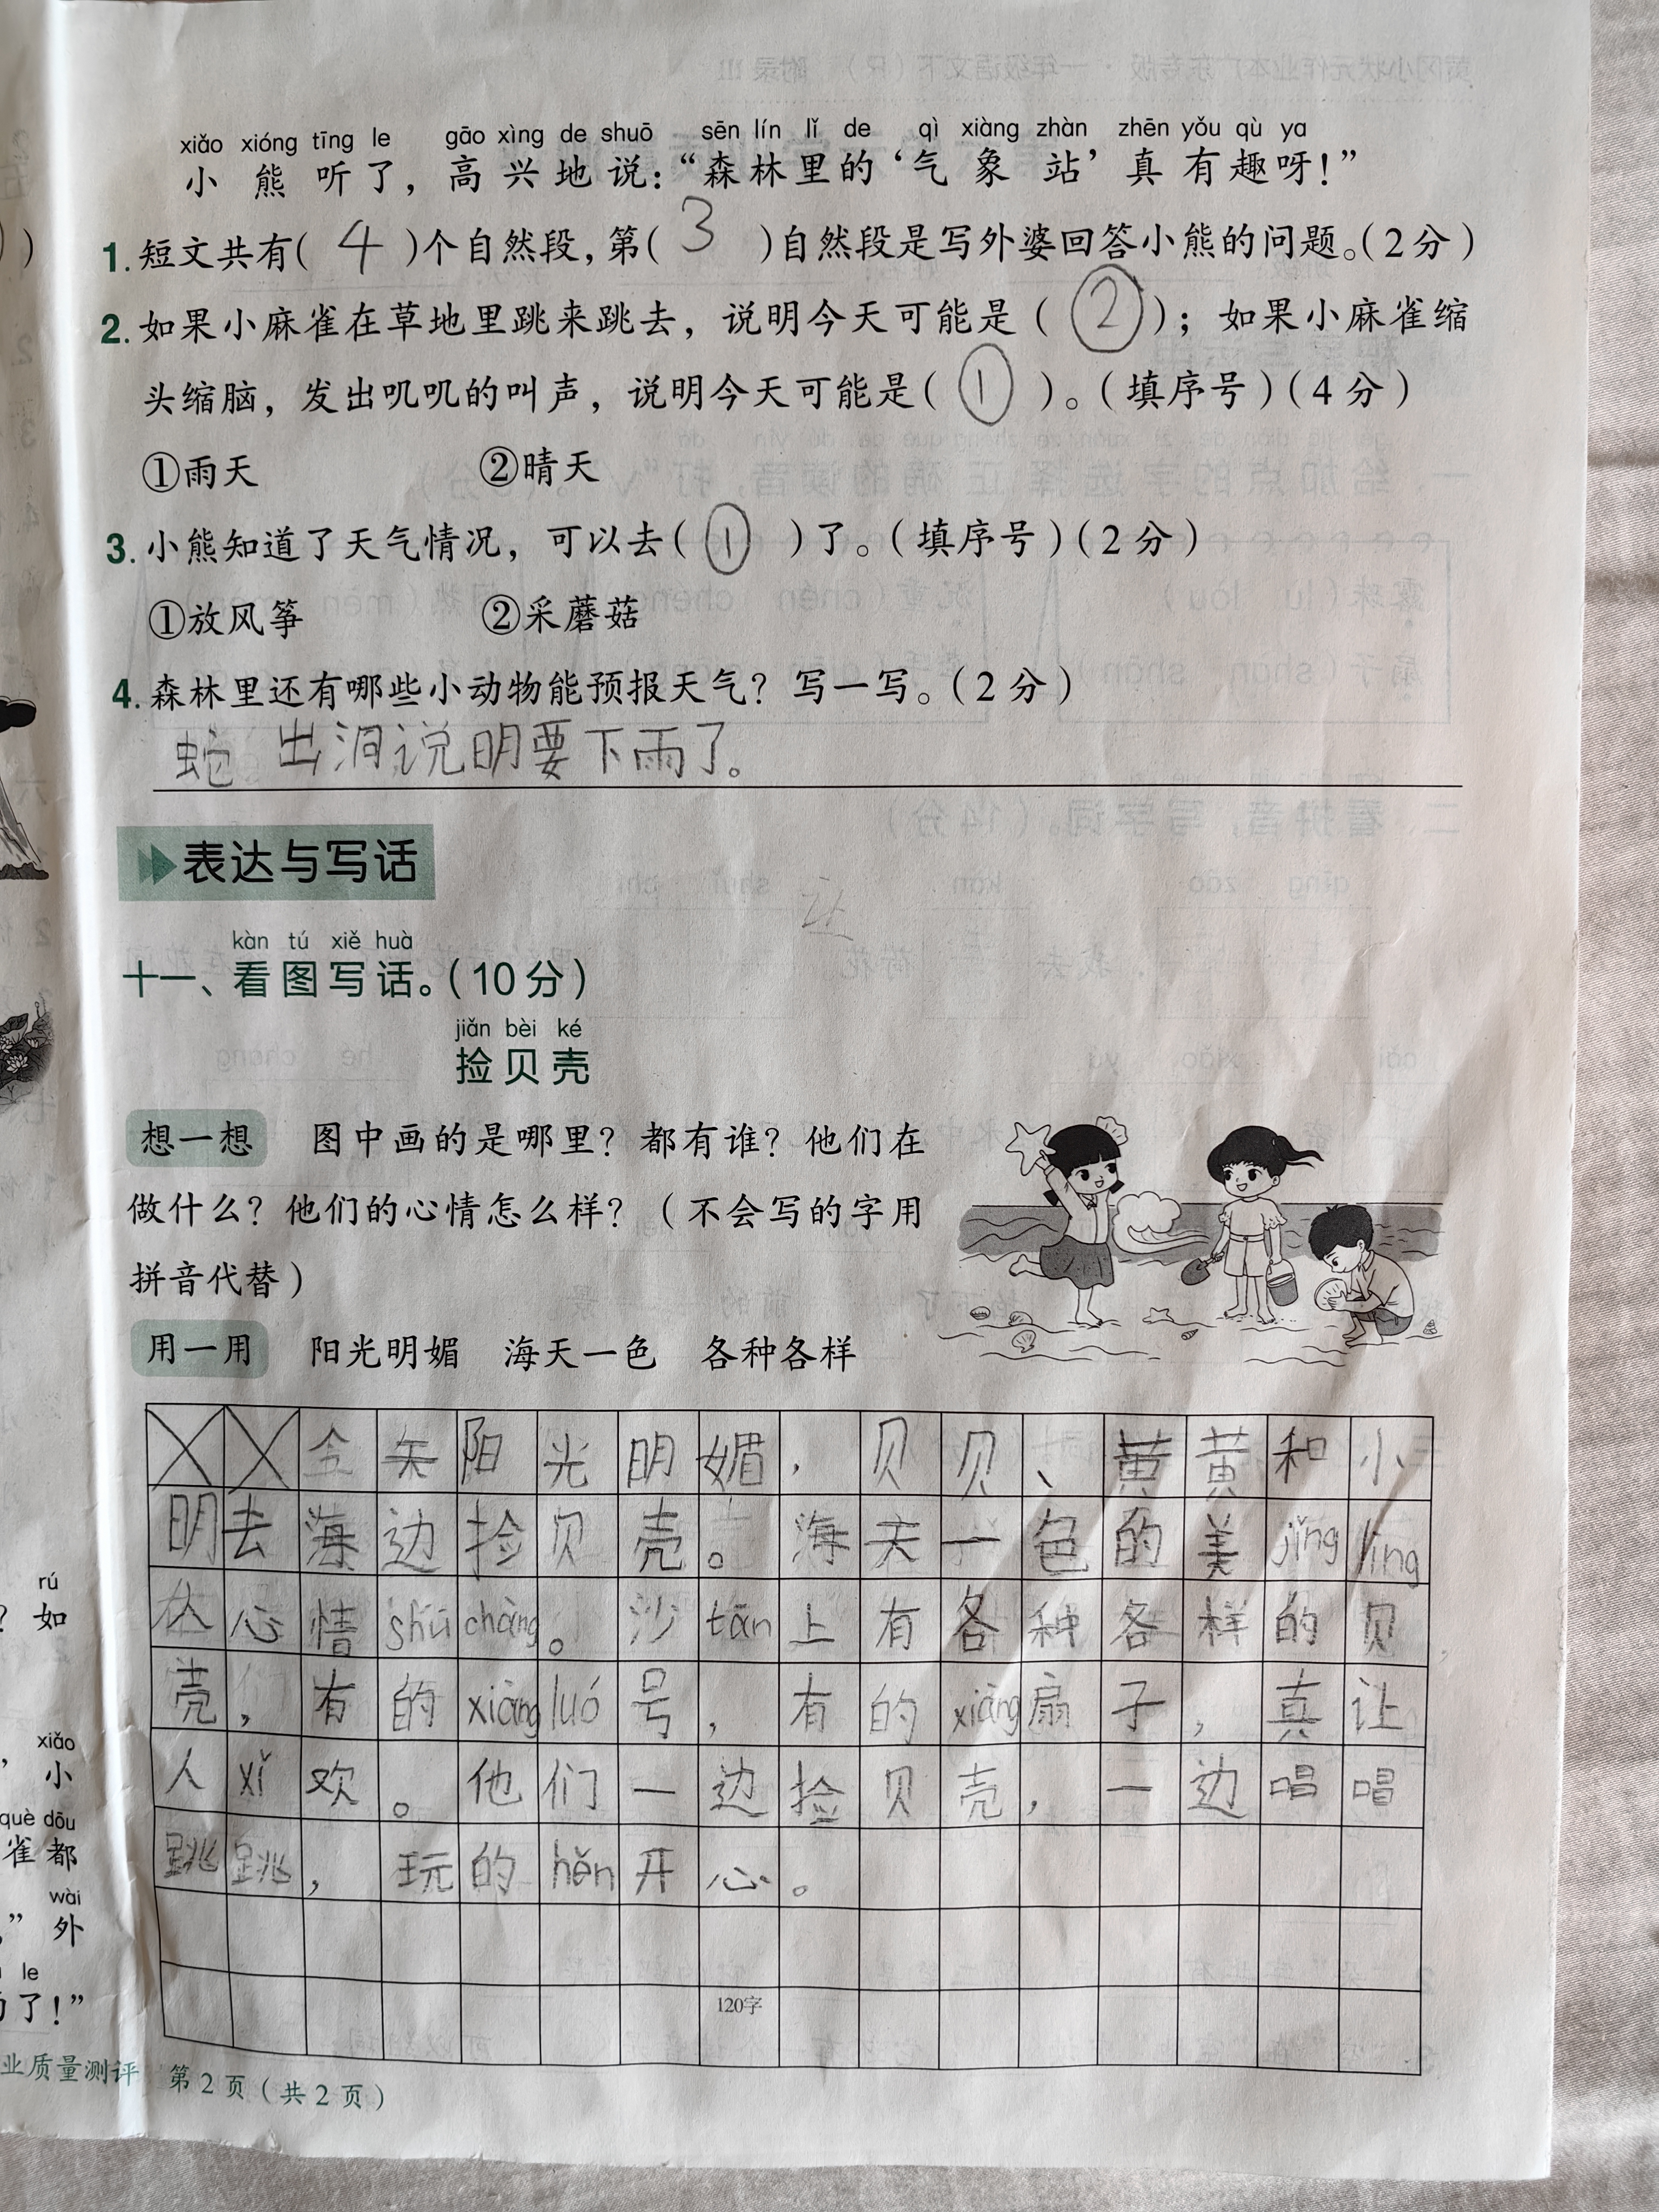 xiǎo xióng tīng le gāo xìng de shuō sēn lín lǐ de qì xiàng zhàn zhēn yǒu qù ya
小熊听了，高兴地说：“森林里的‘气象站’真有趣呀！”
1. 短文共有( 4 )个自然段，第( 3 )自然段是写外婆回答小熊的问题。(2分)
2. 如果小麻雀在草地里跳来跳去，说明今天可能是( ② )；如果小麻雀缩
头缩脑，发出叽叽的叫声，说明今天可能是( ① )。(填序号)(4分)
①雨天 ②晴天
3. 小熊知道了天气情况，可以去( ① )了。(填序号)(2分)
①放风筝 ②采蘑菇
4. 森林里还有哪些小动物能预报天气？写一写。(2分)
蛇出洞说明要下雨了。
表达与写话
让
kàn tú xiě huà
十一、看图写话。(10分)
jiǎn bèi ké
捡贝壳
想一想 图中画的是哪里？都有谁？他们在
做什么？他们的心情怎么样？(不会写的字用
拼音代替)
用一用 阳光明媚 海天一色 各种各样
今天阳光明媚，贝贝、黄黄和小
明去海边捡贝壳。海天一色的美jǐng lìng
人心情shū chàng。沙tān上有各种各样的贝
壳，有的xiàng luó号，有的xiàng扇子，真让
人xǐ欢。他们一边捡贝壳，一边唱唱
跳跳，玩的hěn开心。
120字
rú
？如
xiǎo
，小
què dōu
雀都
wài
”外
le
了！”
业质量测评 第2页(共2页)